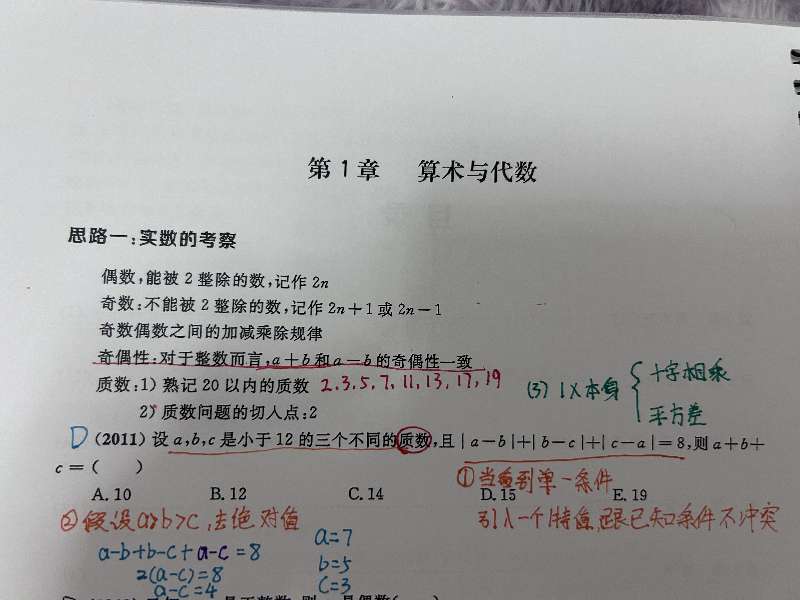 第1章 算术与代数
思路一:实数的考察
偶数,能被2整除的数,记作2n
奇数:不能被2整除的数,记作2n+1或2n-1
奇数偶数之间的加减乘除规律
奇偶性:对于整数而言,a+b和a-b的奇偶性一致
质数:1)熟记20以内的质数 2,3,5,7,11,13,17,19 (3) 1×本身 { 十字相乘
平方差
2)质数问题的切入点:2
D (2011)设a,b,c是小于12的三个不同的质数,且|a-b|+|b-c|+|c-a|=8,则a+b+
c=( )
①当看到单一条件
A.10 B.12 C.14 D.15 E.19
②假设a>b>c,去绝对值 引入一个特值,跟已知条件不冲突
a-b+b-c+a-c=8 a=7
2(a-c)=8 b=5
a-c=4 c=3